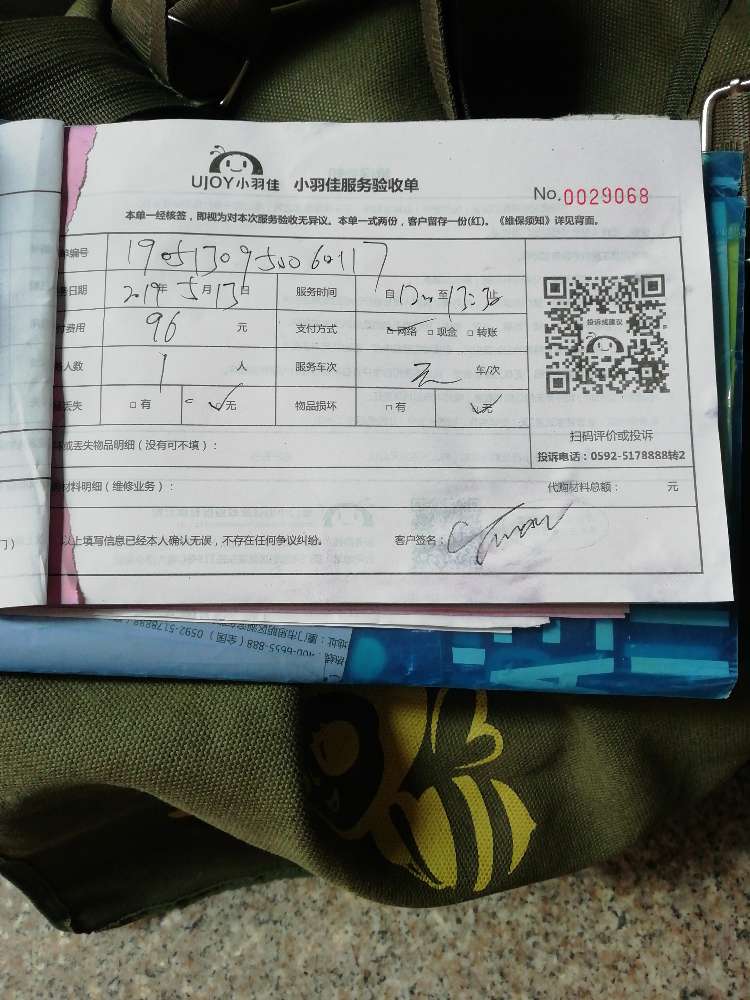 UJOY小羽佳 小羽佳服务验收单
No.0029068
本单一经核签，即视为对本次服务验收无异议。本单一式两份，客户留存一份(红)。《维保须知》详见背面。
单编号 1905130950060117
务日期 2019年5月13日 服务时间 自12:00至13:30止
付费用 96 元 支付方式 网络 现金 转账
务人数 1 人 服务车次 无 车/次
丢失 有 无 物品损坏 有 无
投诉或建议
扫码评价或投诉
投诉电话：0592-5178888转2
坏或丢失物品明细（没有可不填）：
材料明细（维修业务）： 代购材料总额： 元
以上填写信息已经本人确认无误，不存在任何争议纠纷。 客户签名：
门）
热线：400-6655-888（全国）0592-5178888